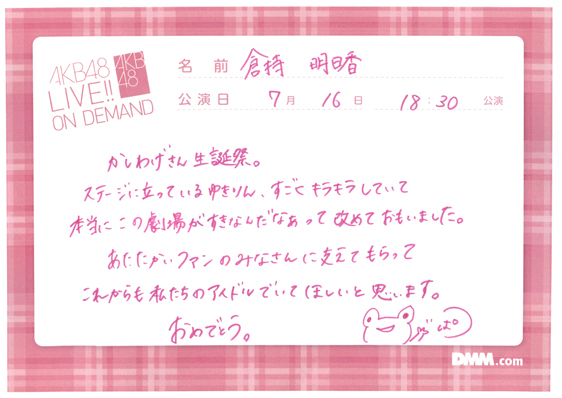 AKB48
LIVE!!
ON DEMAND
AKB
48
名 前 倉持 明日香
公演日 7月 16日 18:30 公演
かしわげさん生誕祭。
ステージに立っているゆきりん、すごくキラキラしていて
本当にこの劇場がすきなんだなぁって改めておもいました。
あたたかいファンのみなさんに支えてもらって
これからも私たちのアイドルでいてほしいと思います。
おめでとう。
DMM.com